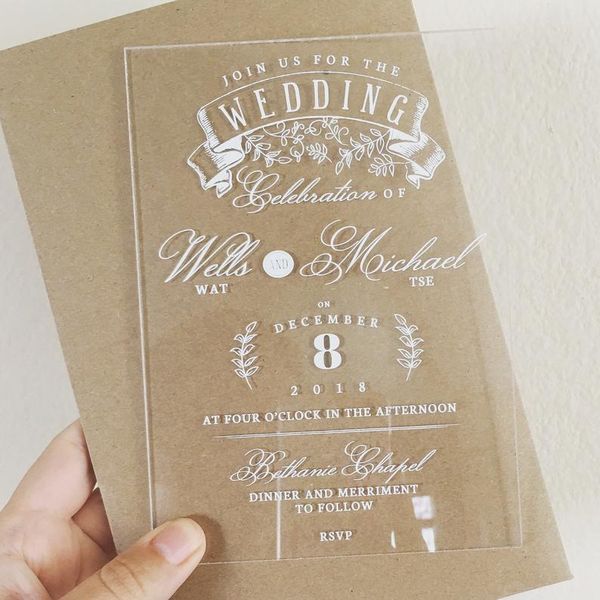 JOIN US FOR THE
WEDDING
Celebration OF
Wells AND Michael
WAT TSE
ON
DECEMBER
8
2018
AT FOUR O'CLOCK IN THE AFTERNOON
Bethanie Chapel
DINNER AND MERRIMENT
TO FOLLOW
RSVP